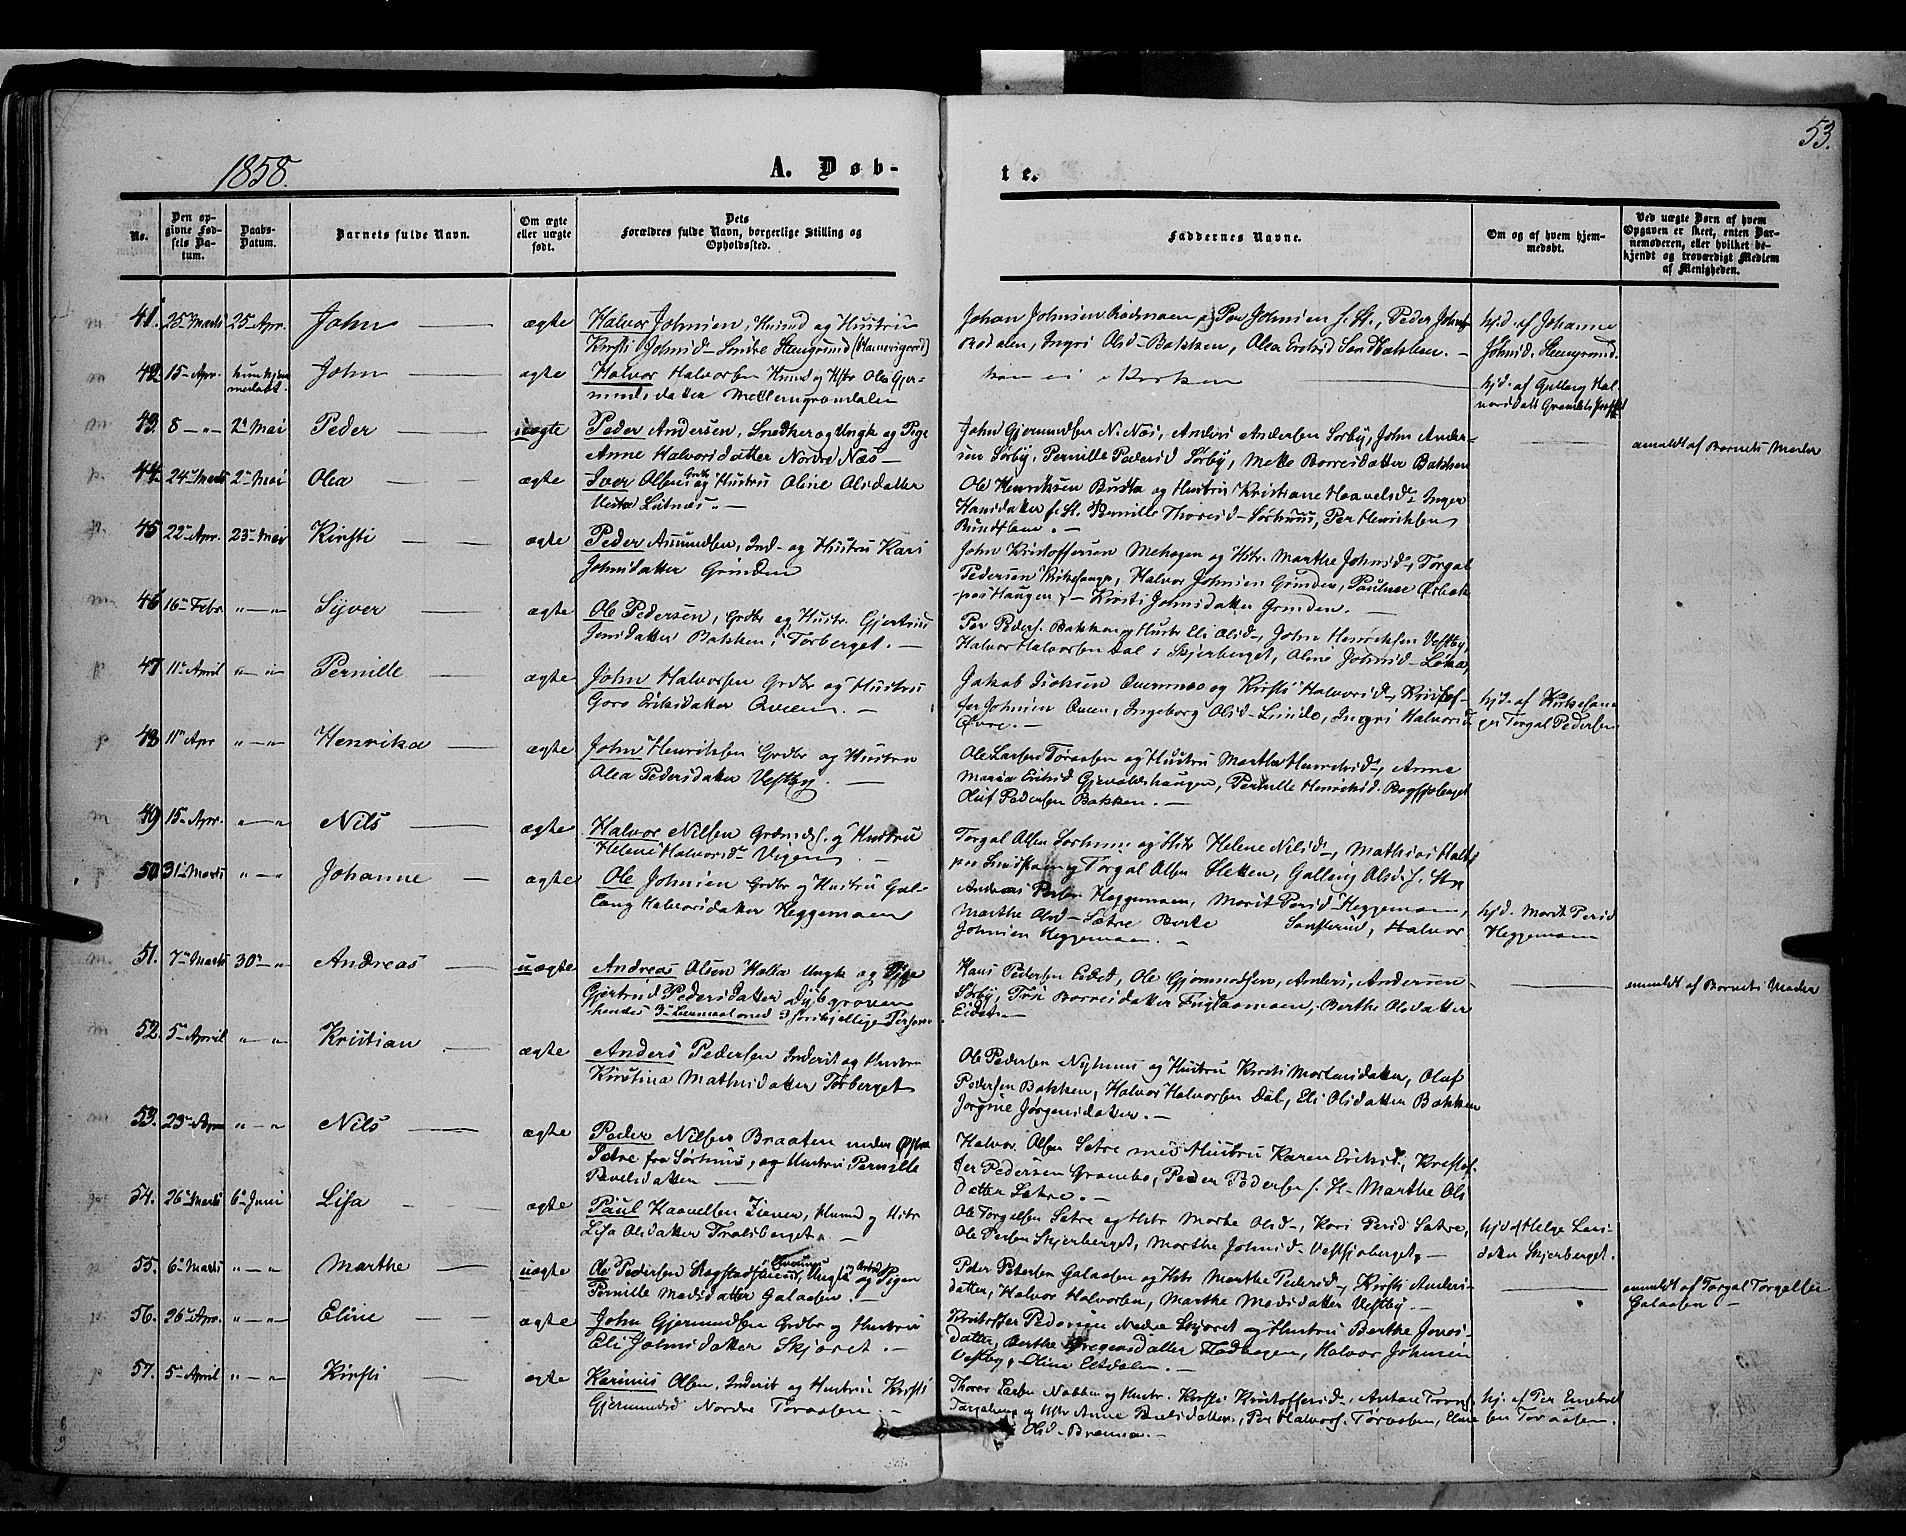 53.
1858.
A. Døb-
te.
No.
Den op-
givne Fød-
sels Da-
tum.
Daabs-
Datum.
Barnets fulde Navn.
Om ægte
eller uægte
født.
Dets
Forældres fulde Navn, borgerlige Stilling og
Opholdssted.
Faddernes Navne.
Om og af hvem hjem-
medøbt.
Ved uægte Børn af hvem
Opgaven er skeet, enten Bar-
nemoderen, eller hvilket be-
kjendt og troværdigt Medlem
af Menigheden.
41. 25 Marts 25 Apr. John ægte Halvor Johnsen, Huusmd og Hustru
Kirsti Johnsd Søndre Stengrund
Johan Johnsen, Peder
Ingri Olsd Bakken, Olea
hjd. af Johanne
Johnsd. Stengrund.
42. 15 Apr. kun hjem-
medøbt. John ægte Halvor Halvorsen Huusmd og Hstr Olea Gjer-
mundsdatter Mellemgrøndalen
kom ei i Kirken
hjd. af Gullaug Hal-
vorsdatt
43. 8 " 2 Mai Peder uægte Peder Andersen, Snedker og Ungk og Pige
Anne Halvorsdatter Nordre Næs
John Gjermundsen N. Næs, Anders Andersen Sørby, John Ander-
sen Sørby, Pernille Pedersd Sørby, Mette Borresdatter Bakken
anmeldt af Barnets Moder
44. 24 Marts 2 Mai Olea ægte Iver Olsen Grdbr og Hustru Oline Olsdatter
Vestre Lutnæs.
Ole Henriksen Busta og Hustru Kristiane Haavelsd, Inger
Hansdatter f. St. Pernille Thoresd Sørhuus, Per Henriksen
45 22 Apr. 23 Mai Kirsti ægte Peder Amundsen, Ind. og Hustru Kari
Johnsdatter Grinden
John Kristoffersen Mehogen og Hstr. Marthe Johnsd, Torgal
Pedersen Kirkesange, Halvor Johnsen Grinden, Pauline
Haugen, Kirsti Johnsdatter Grinden.
46 16 Febr " " Syver ægte Ole Pedersen, Grdbr og Hustr. Gjertrud
Jensdatter Bakken i Torberget.
Per Peders. Bakken og Hustr Eli Olsd, John Henriksen Vestby,
Halvor Halvorsen Dal i Skjerberget, Oline Johnsd Løken
47 11 April " " Pernille ægte John Halvorsen Grdbr og Hustru
Goro Eriksdatter Qvæen.
Jakob og Kirsti Halvorsd, Kristof-
fer Johnsen Qvæen, Ingeborg Olsd Linde, Ingri Halvorsd
Øvre.
hjd. af Kirkesan-
ger Torgal Pedersen
48 11 Apr " " Henrika ægte John Henriksen Grdbr og Hustru
Olea Pedersdatter Vestby.
Ole Larsen Toraasen og Hustru Marthe Henriksd, Anne
Maria Eriksd Gjevaldshaugen, Pernille Henriksd
Oluf Pedersen Bakken.
49 15 Apr. " " Nils ægte Halvor Nilsen Grænds. og Hustru
Helene Halvorsd Vigen
Torgal Olsen Sørhuus og Hstr Helene Nilsd, Mathias
Torgal Olsen Sletten, Gullaug Olsd
50 31 Marts " " Johanne ægte Ole Johnsen Grdbr og Hustru Gul-
laug Halvorsdatter Heggemoen
Andreas Persen Heggemoen, Marit Persd Heggemoen,
Marthe Olsd Sætre Berte, Halvor
Johnsen Heggemoen.
hjd. Marit Persd
Heggemoen
51. 7 Marts 30 " Andreas uægte Andreas Olsen Ungk og Pige
Gjertrud Pedersdatter Dybgraven
hendes 3die Leiermaal med 3 forskjellige Personer
Hans Pedersen Eidet, Ole Gjermundsen, Anders Andersen
Sørby, Borresdatter, Berthe Olsdatter
anmeldt af Barnets Moder
52. 5 April " " Kristian ægte Anders Pedersen Inderst og Hustru
Kirstine Mathisdatter Torberget
Ole Pedersen Nyhuus og Hustru Kirsti Mortensdatter, Oluf
Pedersen Bakken, Halvor Halvorsen Dal, Eli Olsdatter Bakken
Jørgine Jørgensdatter.
53. 23 Apr " " Nils ægte Peder Nilsen Braaten under Østre
Sætre fra Sørhuus, og Hustru Pernille
Povelsdatter
Halvor Olsen Sætre med Hustru Karen Eriksd, Kristof-
fer Pedersen Grambo, Peder Pedersen, Marthe Ols
datter Sætre.
54. 26 Marts 6 Juni Lisa ægte Paul Haavelsen, Huusmd og Hstr
Lisa Olsdatter Tralsberget
Ole Torgalsen Sætre og Hstr Marte Olsd, Kari Persd Sætre,
Ole Persen Skjerberget, Marthe Johnsd Vestsjøberget,
hjd af Helge Lars-
datter Skjerberget.
55. 6 Marts " " Marthe uægte Ole Pedersen, Ungk og Pigen
Pernille Madsdatter Galaasen.
Peter Petersen Galaasen og Hstr Marthe Pedersd, Kirsti Anders-
datter, Halvor Halvorsen, Marthe Madsdatter Vestby.
anmeldt af Torgal Torgalsen
Galaasen
56. 26 Apr. " " Eline ægte John Gjermundsen Grdbr og Hustru
Eli Johnsdatter Skjæret.
Kristoffer Pedersen Nedre Skjæret og Hustru Berthe Jons-
datter, Berthe, Halvor Johnsen
Vestby, Oline Eltdalen.
57. 5 April " " Kirsti ægte Karinus Olsen, Inderst og Hustru Kirsti
Gjermundsd Nordre Toraasen.
Thores Larsen Nabben og Hustr. Kirsti Kristoffersd,
og Hstr Anne Paulsdatter, Per Halvors. Toraasen, Eline
Olsd
hj. af Per Engebret-
sen Toraasen.